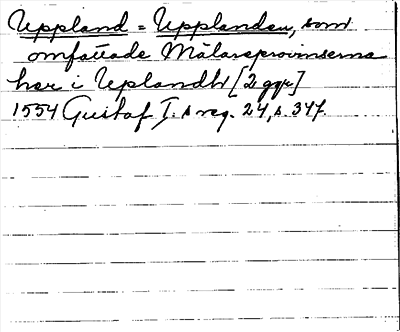 Uppland = Upplanden, som
omfattade Mälareprovinserna
her i Uplandh [2 ggr]
1554 Gustaf I:s reg. 24, s. 347.